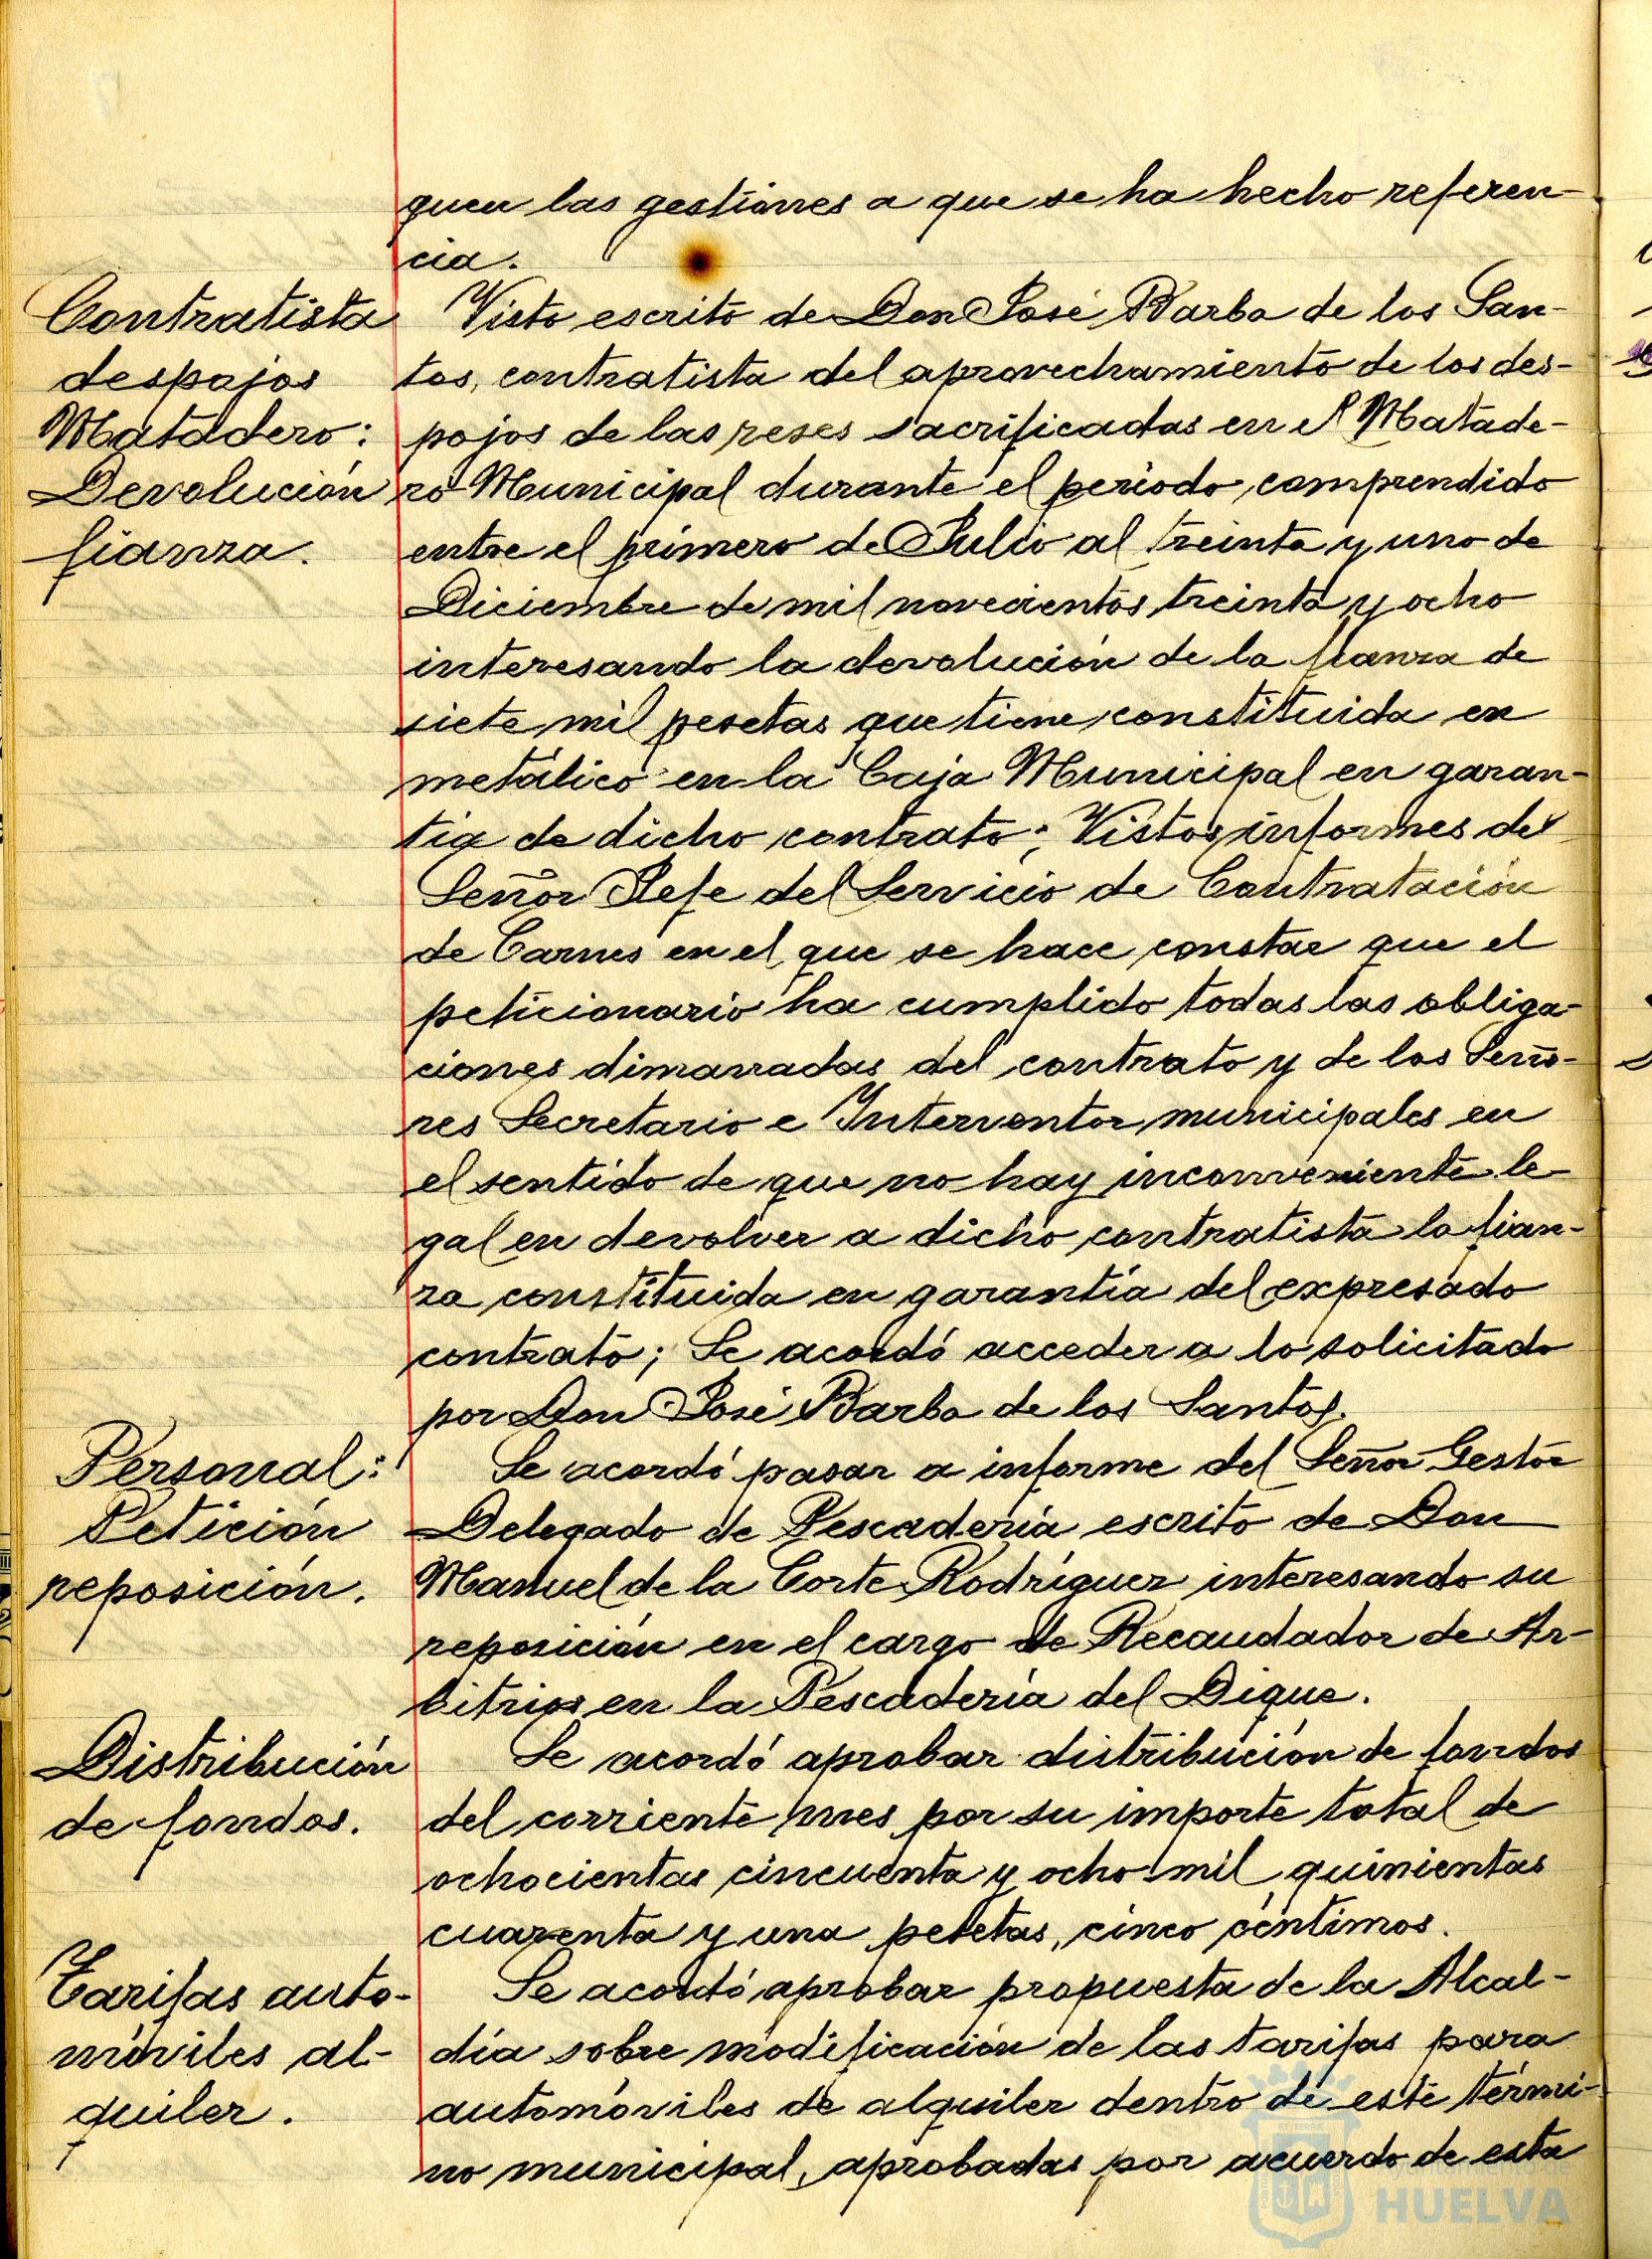 quen las gestiones a que se ha hecho referen-
cia.
Contratista
despojos
Matadero:
Devolución
fianza.
Visto escrito de Don José Barba de los San-
tos, contratista del aprovechamiento de los des-
pojos de las reses sacrificadas en el Matade-
ro Municipal durante el período comprendido
entre el primero de Julio al treinta y uno de
Diciembre de mil novecientos treinta y ocho
interesando la devolución de la fianza de
siete mil pesetas que tiene constituida en
metálico en la Caja Municipal en garan-
tia de dicho contrato; Vistos informes del
Señor Jefe del Servicio de Contratación
de Carnes en el que se hace constar que el
peticionario ha cumplido todas las obliga-
ciones dimanadas del contrato y de los Seño-
res Secretario e Interventor municipales en
el sentido de que no hay inconveniente le-
gal en devolver a dicho contratista la fian-
za constituida en garantía del expresado
contrato; Se acordó acceder a lo solicitado
por Don José Barba de los Santos.
Personal:
Petición
reposición.
Se acordó pasar a informe del Señor Gestor
Delegado de Pescadería escrito de Don
Manuel de la Corte Rodríguez interesando su
reposición en el cargo de Recaudador de Ar-
bitrios en la Pescadería del Dique.
Distribución
de fondos.
Se acordó aprobar distribución de fondos
del corriente mes por su importe total de
ochocientas cincuenta y ocho mil quinientas
cuarenta y una pesetas, cinco céntimos.
Tarifas auto-
móviles al-
quiler.
Se acordó aprobar propuesta de la Alcal-
día sobre modificación de las tarifas para
automóviles de alquiler dentro de este térmi-
no municipal, aprobadas por acuerdo de esta
HUELVA